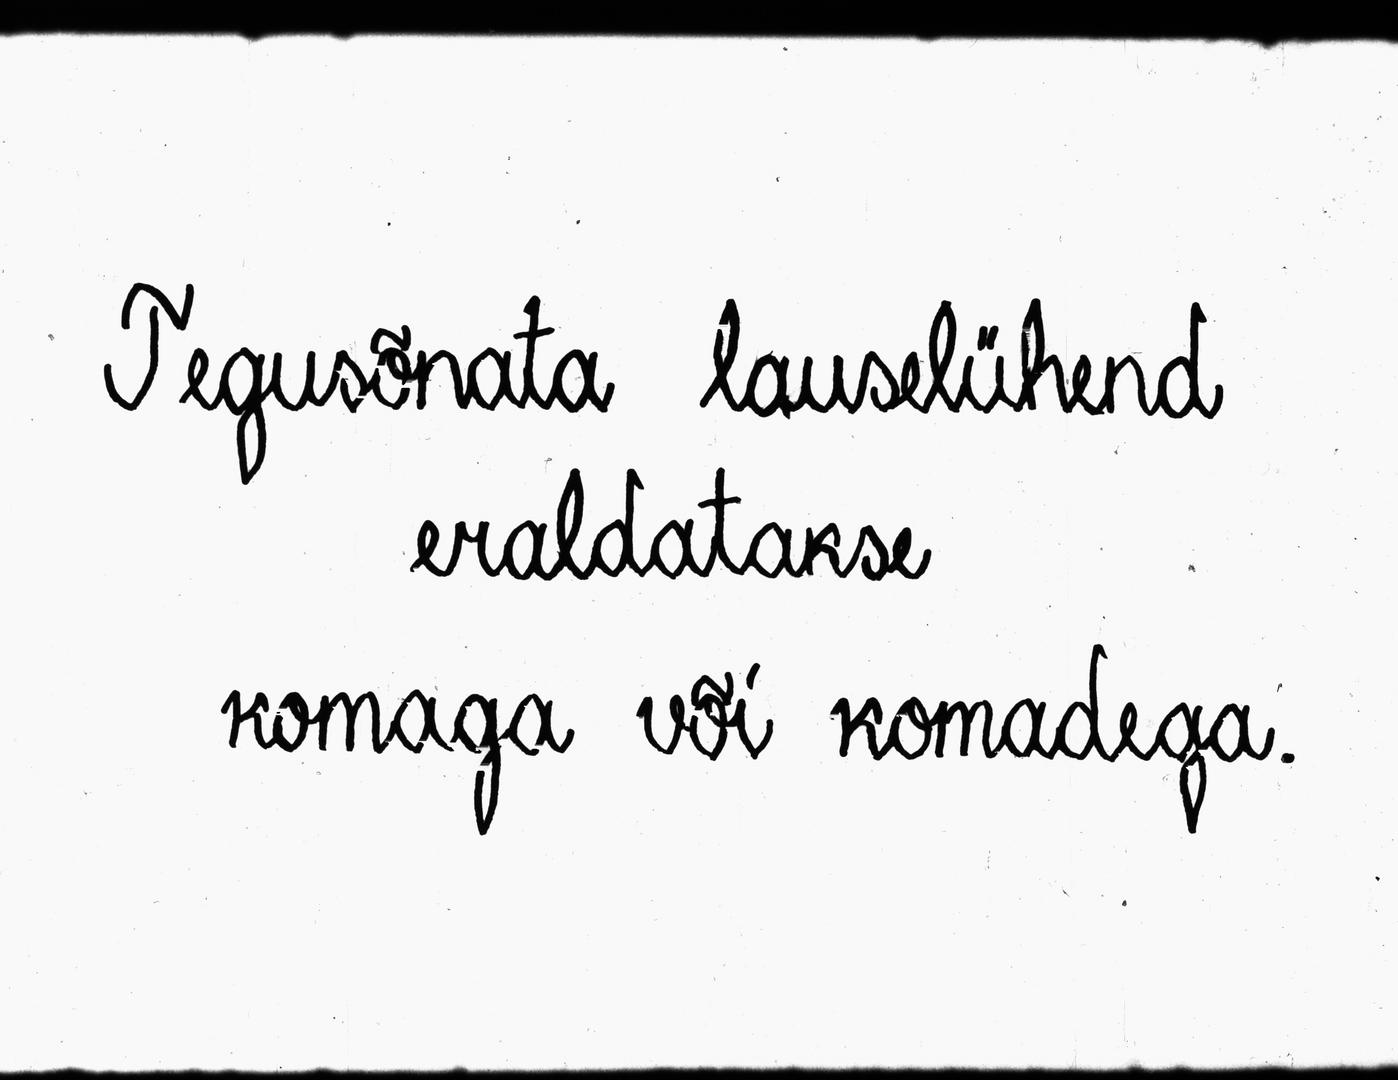 Tegusõnata lauselühend
eraldatakse
komaga või komadega.